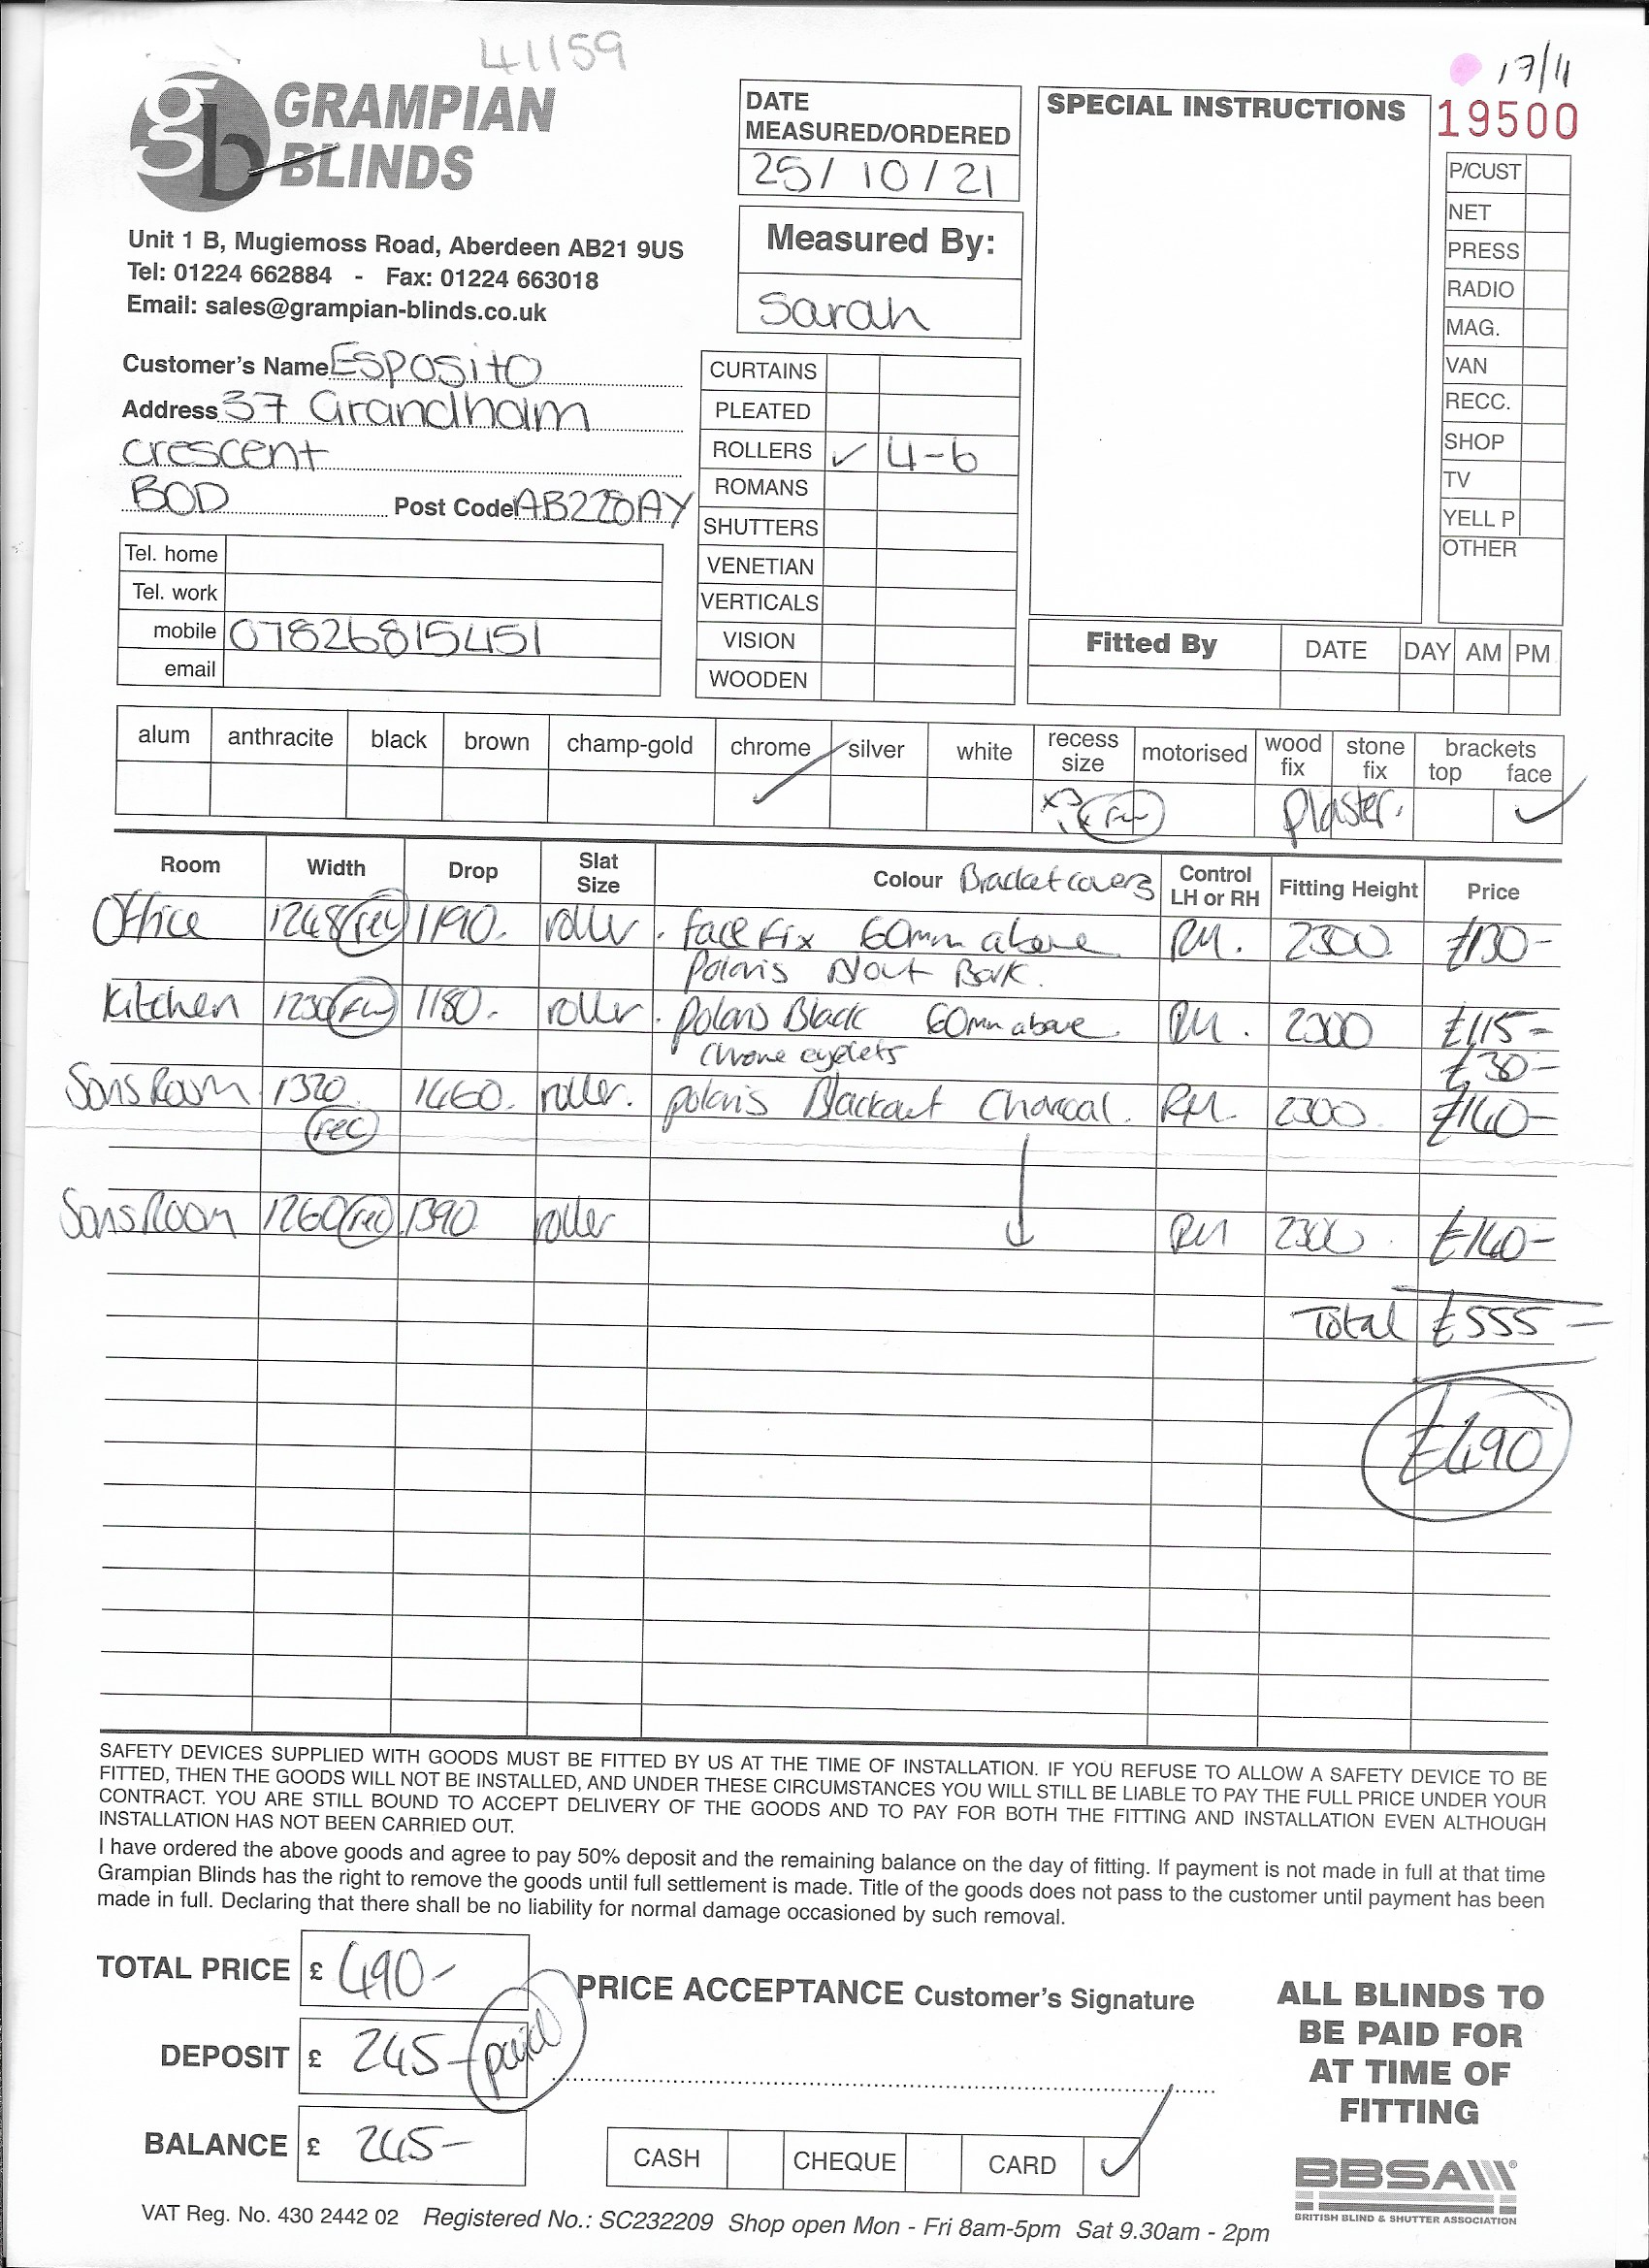 41159
17/11
GRAMPIAN
BLINDS
gb
19500
Unit 1 B, Mugiemoss Road, Aberdeen AB21 9US
Tel: 01224 662884 - Fax: 01224 663018
Email: sales@grampian-blinds.co.uk
DATE
MEASURED/ORDERED
25/10/21
Measured By:
Sarah
SPECIAL INSTRUCTIONS
P/CUST
NET
PRESS
RADIO
MAG.
VAN
RECC.
SHOP
TV
YELL P
OTHER
Customer's Name Esposito
Address 37 Grandholm
crescent
BOD Post Code AB228AY
Tel. home
Tel. work
mobile 07826815451
email
CURTAINS
PLEATED
ROLLERS ✓ 4-6
ROMANS
SHUTTERS
VENETIAN
VERTICALS
VISION
WOODEN
Fitted By DATE DAY AM PM
alum anthracite black brown champ-gold chrome silver white recess size motorised wood fix stone fix brackets top face
✓ x3 Plaster. ✓
Room Width Drop Slat Size Colour Bracket covers Control LH or RH Fitting Height Price
Office 1248 rec 1190. roller. face fix 60mm above RH. 2300 £130-
Polaris Blout Bark.
Kitchen 1230 1180. roller. Polaris Black 60mm above RH. 2300 £115-
Chrome eyelets £30-
Sons Room 1320 1460. roller. polaris Blackout Charcoal. RH. 2300 £140-
rec
Sons Room 1260 rec 1390 roller RH 2300 £140-
Total £555-
£490
SAFETY DEVICES SUPPLIED WITH GOODS MUST BE FITTED BY US AT THE TIME OF INSTALLATION. IF YOU REFUSE TO ALLOW A SAFETY DEVICE TO BE
FITTED, THEN THE GOODS WILL NOT BE INSTALLED, AND UNDER THESE CIRCUMSTANCES YOU WILL STILL BE LIABLE TO PAY THE FULL PRICE UNDER YOUR
CONTRACT. YOU ARE STILL BOUND TO ACCEPT DELIVERY OF THE GOODS AND TO PAY FOR BOTH THE FITTING AND INSTALLATION EVEN ALTHOUGH
INSTALLATION HAS NOT BEEN CARRIED OUT.
I have ordered the above goods and agree to pay 50% deposit and the remaining balance on the day of fitting. If payment is not made in full at that time
Grampian Blinds has the right to remove the goods until full settlement is made. Title of the goods does not pass to the customer until payment has been
made in full. Declaring that there shall be no liability for normal damage occasioned by such removal.
TOTAL PRICE £ 490-
DEPOSIT £ 245- paid
BALANCE £ 245-
PRICE ACCEPTANCE Customer's Signature
CASH CHEQUE CARD ✓
ALL BLINDS TO
BE PAID FOR
AT TIME OF
FITTING
BBSA
BRITISH BLIND & SHUTTER ASSOCIATION
VAT Reg. No. 430 2442 02 Registered No.: SC232209 Shop open Mon - Fri 8am-5pm Sat 9.30am - 2pm